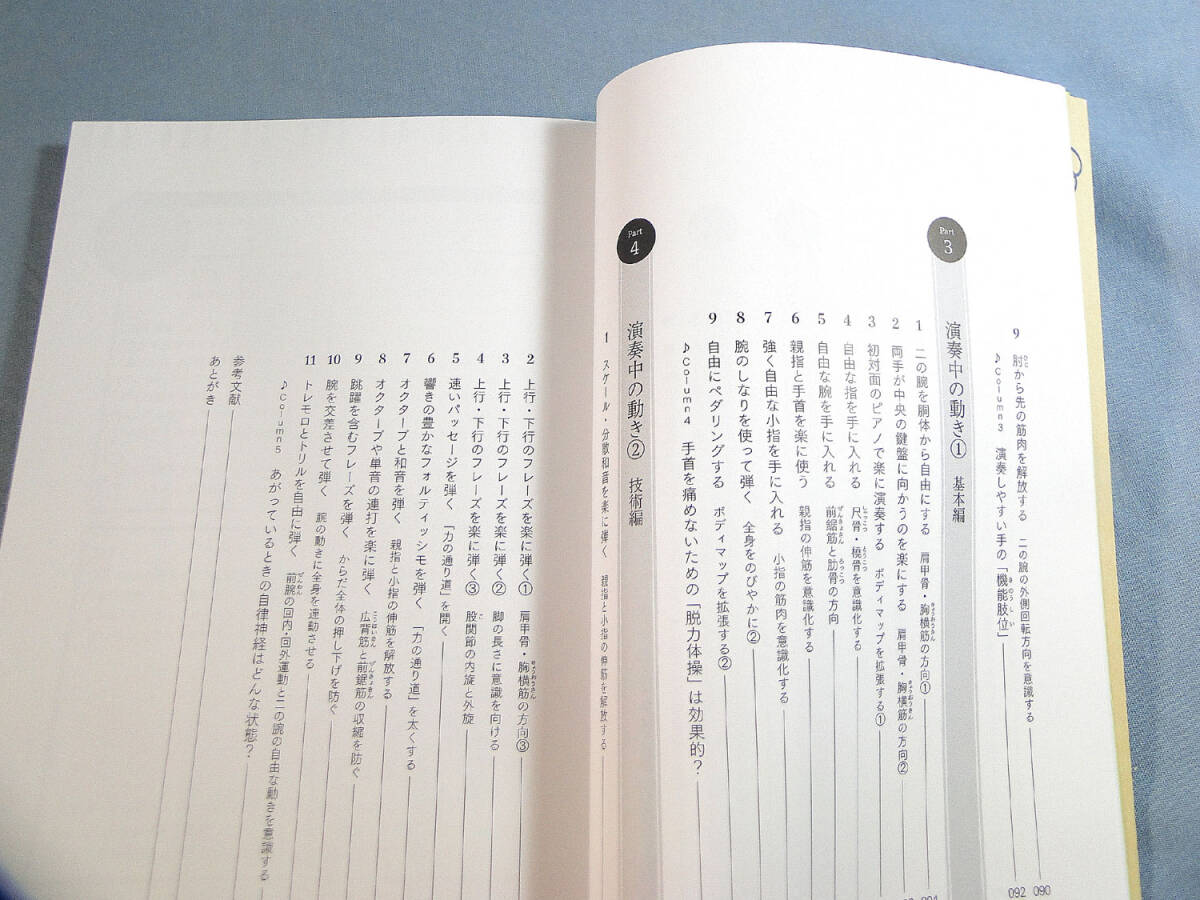 9 肘から先の筋肉を解放する 二の腕の外側回転方向を意識する 090
♪Column3 演奏しやすい手の「機能肢位」 092
Part 3 演奏中の動き① 基本編
1 二の腕を胴体から自由にする 肩甲骨・胸横筋の方向①
2 両手が中央の鍵盤に向かうのを楽にする 肩甲骨・胸横筋の方向②
3 初対面のピアノで楽に演奏する ボディマップを拡張する①
4 自由な指を手に入れる 尺骨・橈骨を意識化する
5 自由な腕を手に入れる 前鋸筋と肋骨の方向
6 親指と手首を楽に使う 親指の伸筋を意識化する
7 強く自由な小指を手に入れる 小指の筋肉を意識化する
8 腕のしなりを使って弾く 全身をのびやかに②
9 自由にペダリングする ボディマップを拡張する②
♪Column4 手首を痛めないための「脱力体操」は効果的?
Part 4 演奏中の動き② 技術編
1 スケール・分散和音を楽に弾く 親指と小指の伸筋を解放する
2 上行・下行のフレーズを楽に弾く① 肩甲骨・胸横筋の方向③
3 上行・下行のフレーズを楽に弾く② 脚の長さに意識を向ける
4 上行・下行のフレーズを楽に弾く③ 股関節の内旋と外旋
5 速いパッセージを弾く 「力の通り道」を開く
6 響きの豊かなフォルティッシモを弾く 「力の通り道」を太くする
7 オクターブと和音を弾く 親指と小指の伸筋を解放する
8 オクターブや単音の連打を楽に弾く 広背筋と前鋸筋の収縮を防ぐ
9 跳躍を含むフレーズを弾く からだ全体の押し下げを防ぐ
10 腕を交差させて弾く 腕の動きに全身を連動させる
11 トレモロとトリルを自由に弾く 前腕の回内・回外運動と二の腕の自由な動きを意識する
♪Column5 あがっているときの自律神経はどんな状態?
参考文献
あとがき